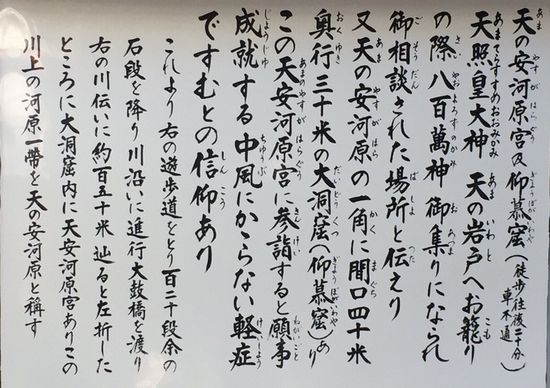 天の安河原宮及仰慕窟(徒歩往復三十分車不通)
天照皇大神 天の岩戸へお籠り
の際 八百萬神 御集りになられ
御相談された場所と伝えり
又天の安河原の一角に間口四十米
奥行三十米の大洞窟(仰慕窟)あり
この天安河原宮に参詣すると願事
成就する 中風にかゝらない 軽症
ですむとの信仰あり
これより右の遊歩道をとり百二十段余の
石段を降り川沿いに進行大鼓橋を渡り
右の川伝いに約百五十米辿ると左折した
ところに大洞窟内に天安河原宮ありこの
川上の河原一帶を天の安河原と稱す